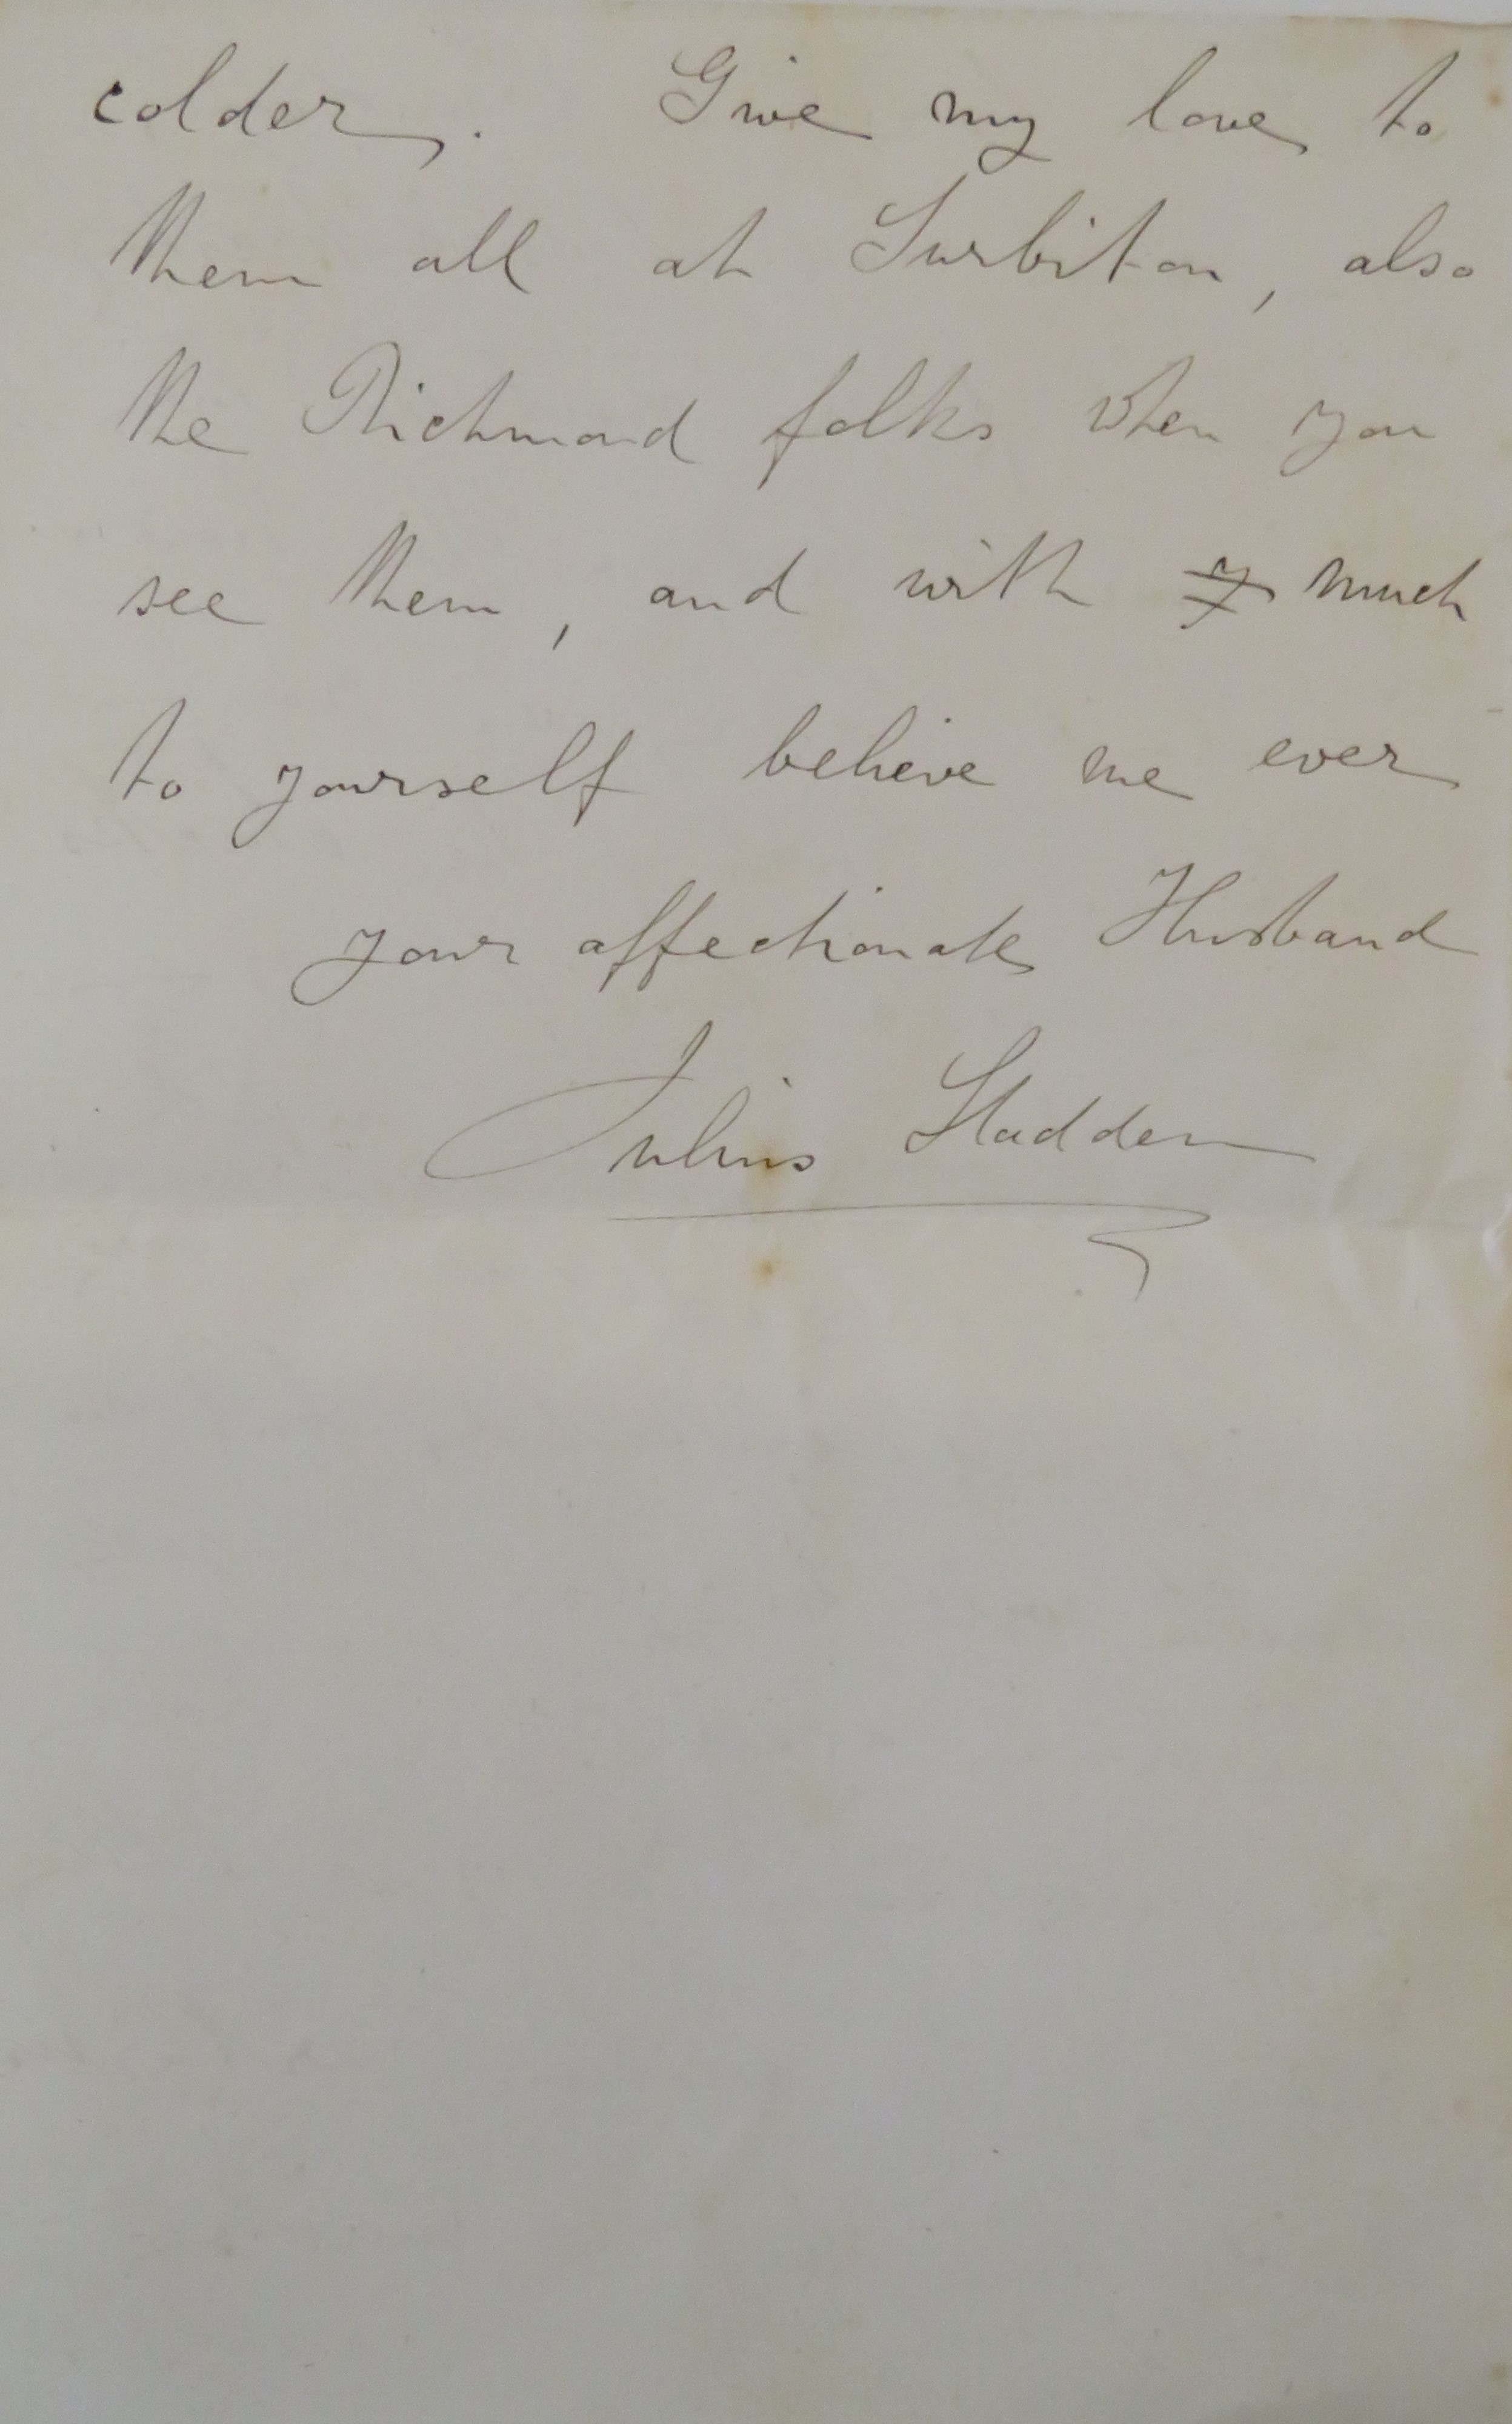 colder. Give my love to
them all at Surbiton, also
the Richmond folks when you
see them, and with much
to yourself believe me ever
your affectionate Husband
Julius Sladden